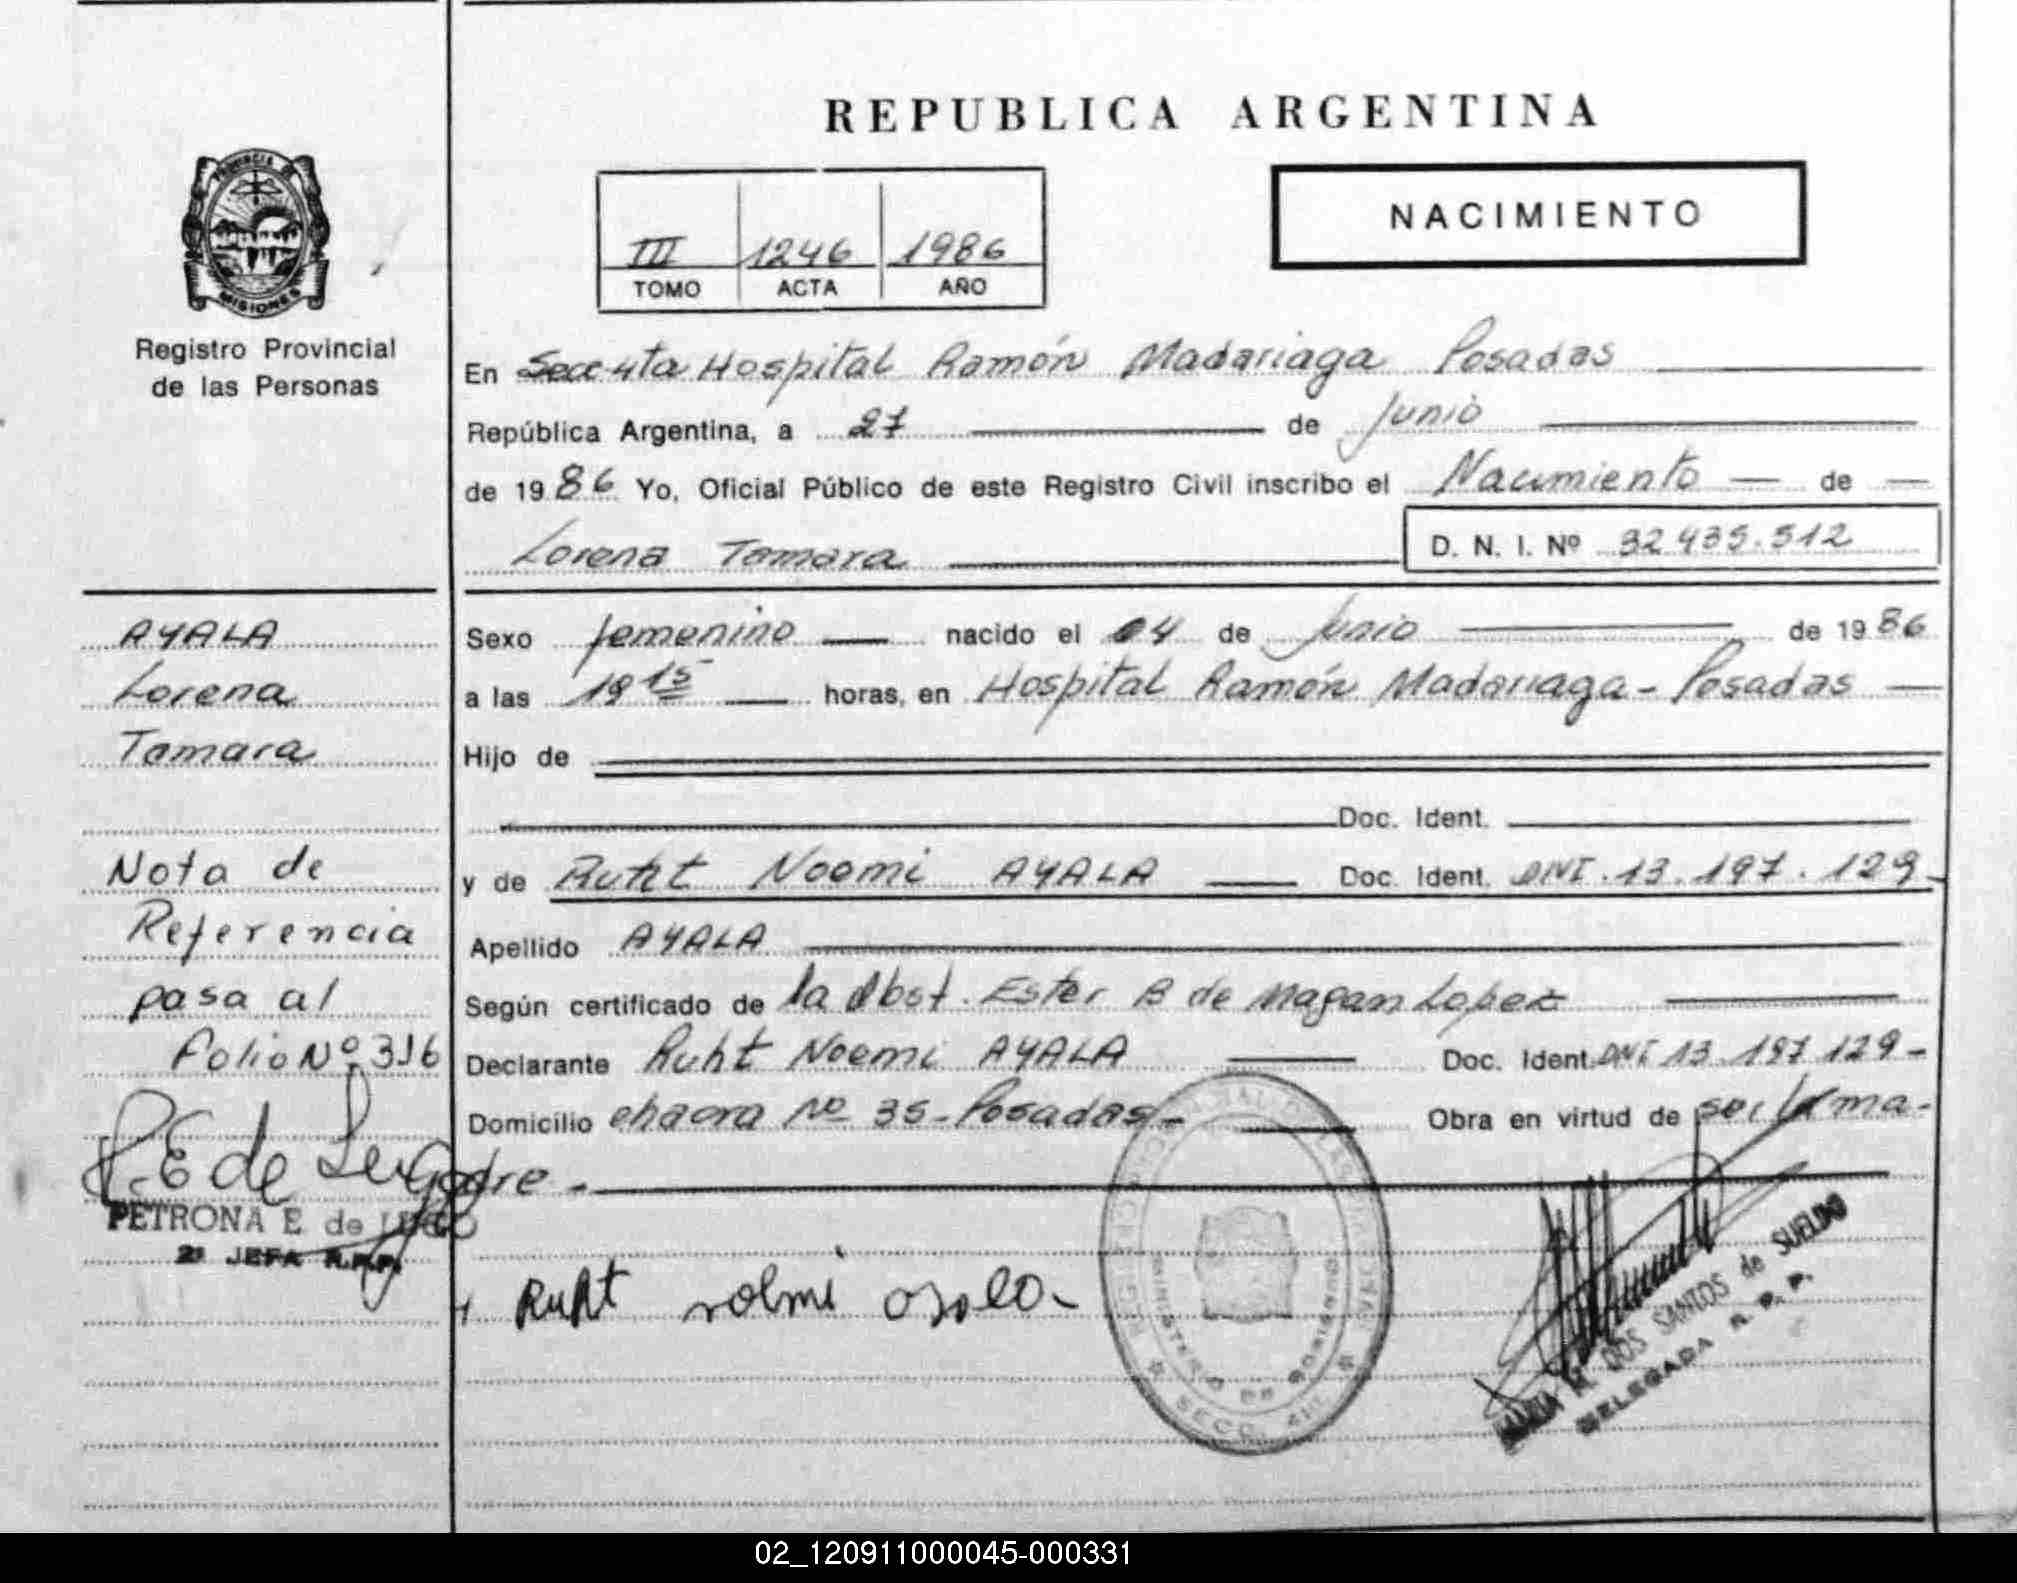 REPUBLICA ARGENTINA
PROVINCIA DE
MISIONES
Registro Provincial
de las Personas
III 1246 1986
TOMO ACTA AÑO
NACIMIENTO
En Hospital Ramón Madariaga Posadas
República Argentina, a 27 de Junio
de 1986 Yo, Oficial Público de este Registro Civil inscribo el Nacimiento de
Lorena Tamara
D. N. I. Nº 32 435.512
AYALA
Lorena
Tamara
Nota de
Referencia
pasa al
Folio Nº 316
P. E de Lugo
PETRONA E de LUGO
2ª JEFA R.P.P.
Sexo femenino nacido el 04 de Junio de 1986
a las 19 15 horas, en Hospital Ramón Madariaga - Posadas
Hijo de
Doc. Ident.
y de Ruht Noemi AYALA Doc. Ident. DNI. 13.197.129
Apellido AYALA
Según certificado de la Obst. Ester B de Magan Lopez
Declarante Ruht Noemi AYALA Doc. Ident. DNI 13.197 129-
Domicilio chacra Nº 35-Posadas- Obra en virtud de ser la ma-
dre-
Ruht noemi ayala-
MINISTERIO DE GOBIERNO
SECC.
DOS SANTOS de SUELDO
DELEGADA R. P. P.
02_120911000045-000331